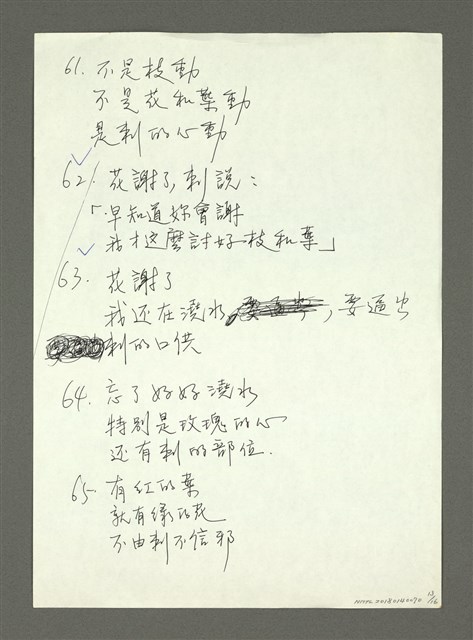 61. 不是枝動
不是花和葉動
是刺的心動
62. 花謝了，刺說：
「早知道妳會謝
我才这麼討好枝和葉」
63. 花謝了
我还在澆水，要逼出
刺的口供
64. 忘了好好澆水
特別是玫瑰的心
还有刺的部位.
65. 有红的葉
就有绿的花
不由刺不信邪
NMTL20180140070 13/16